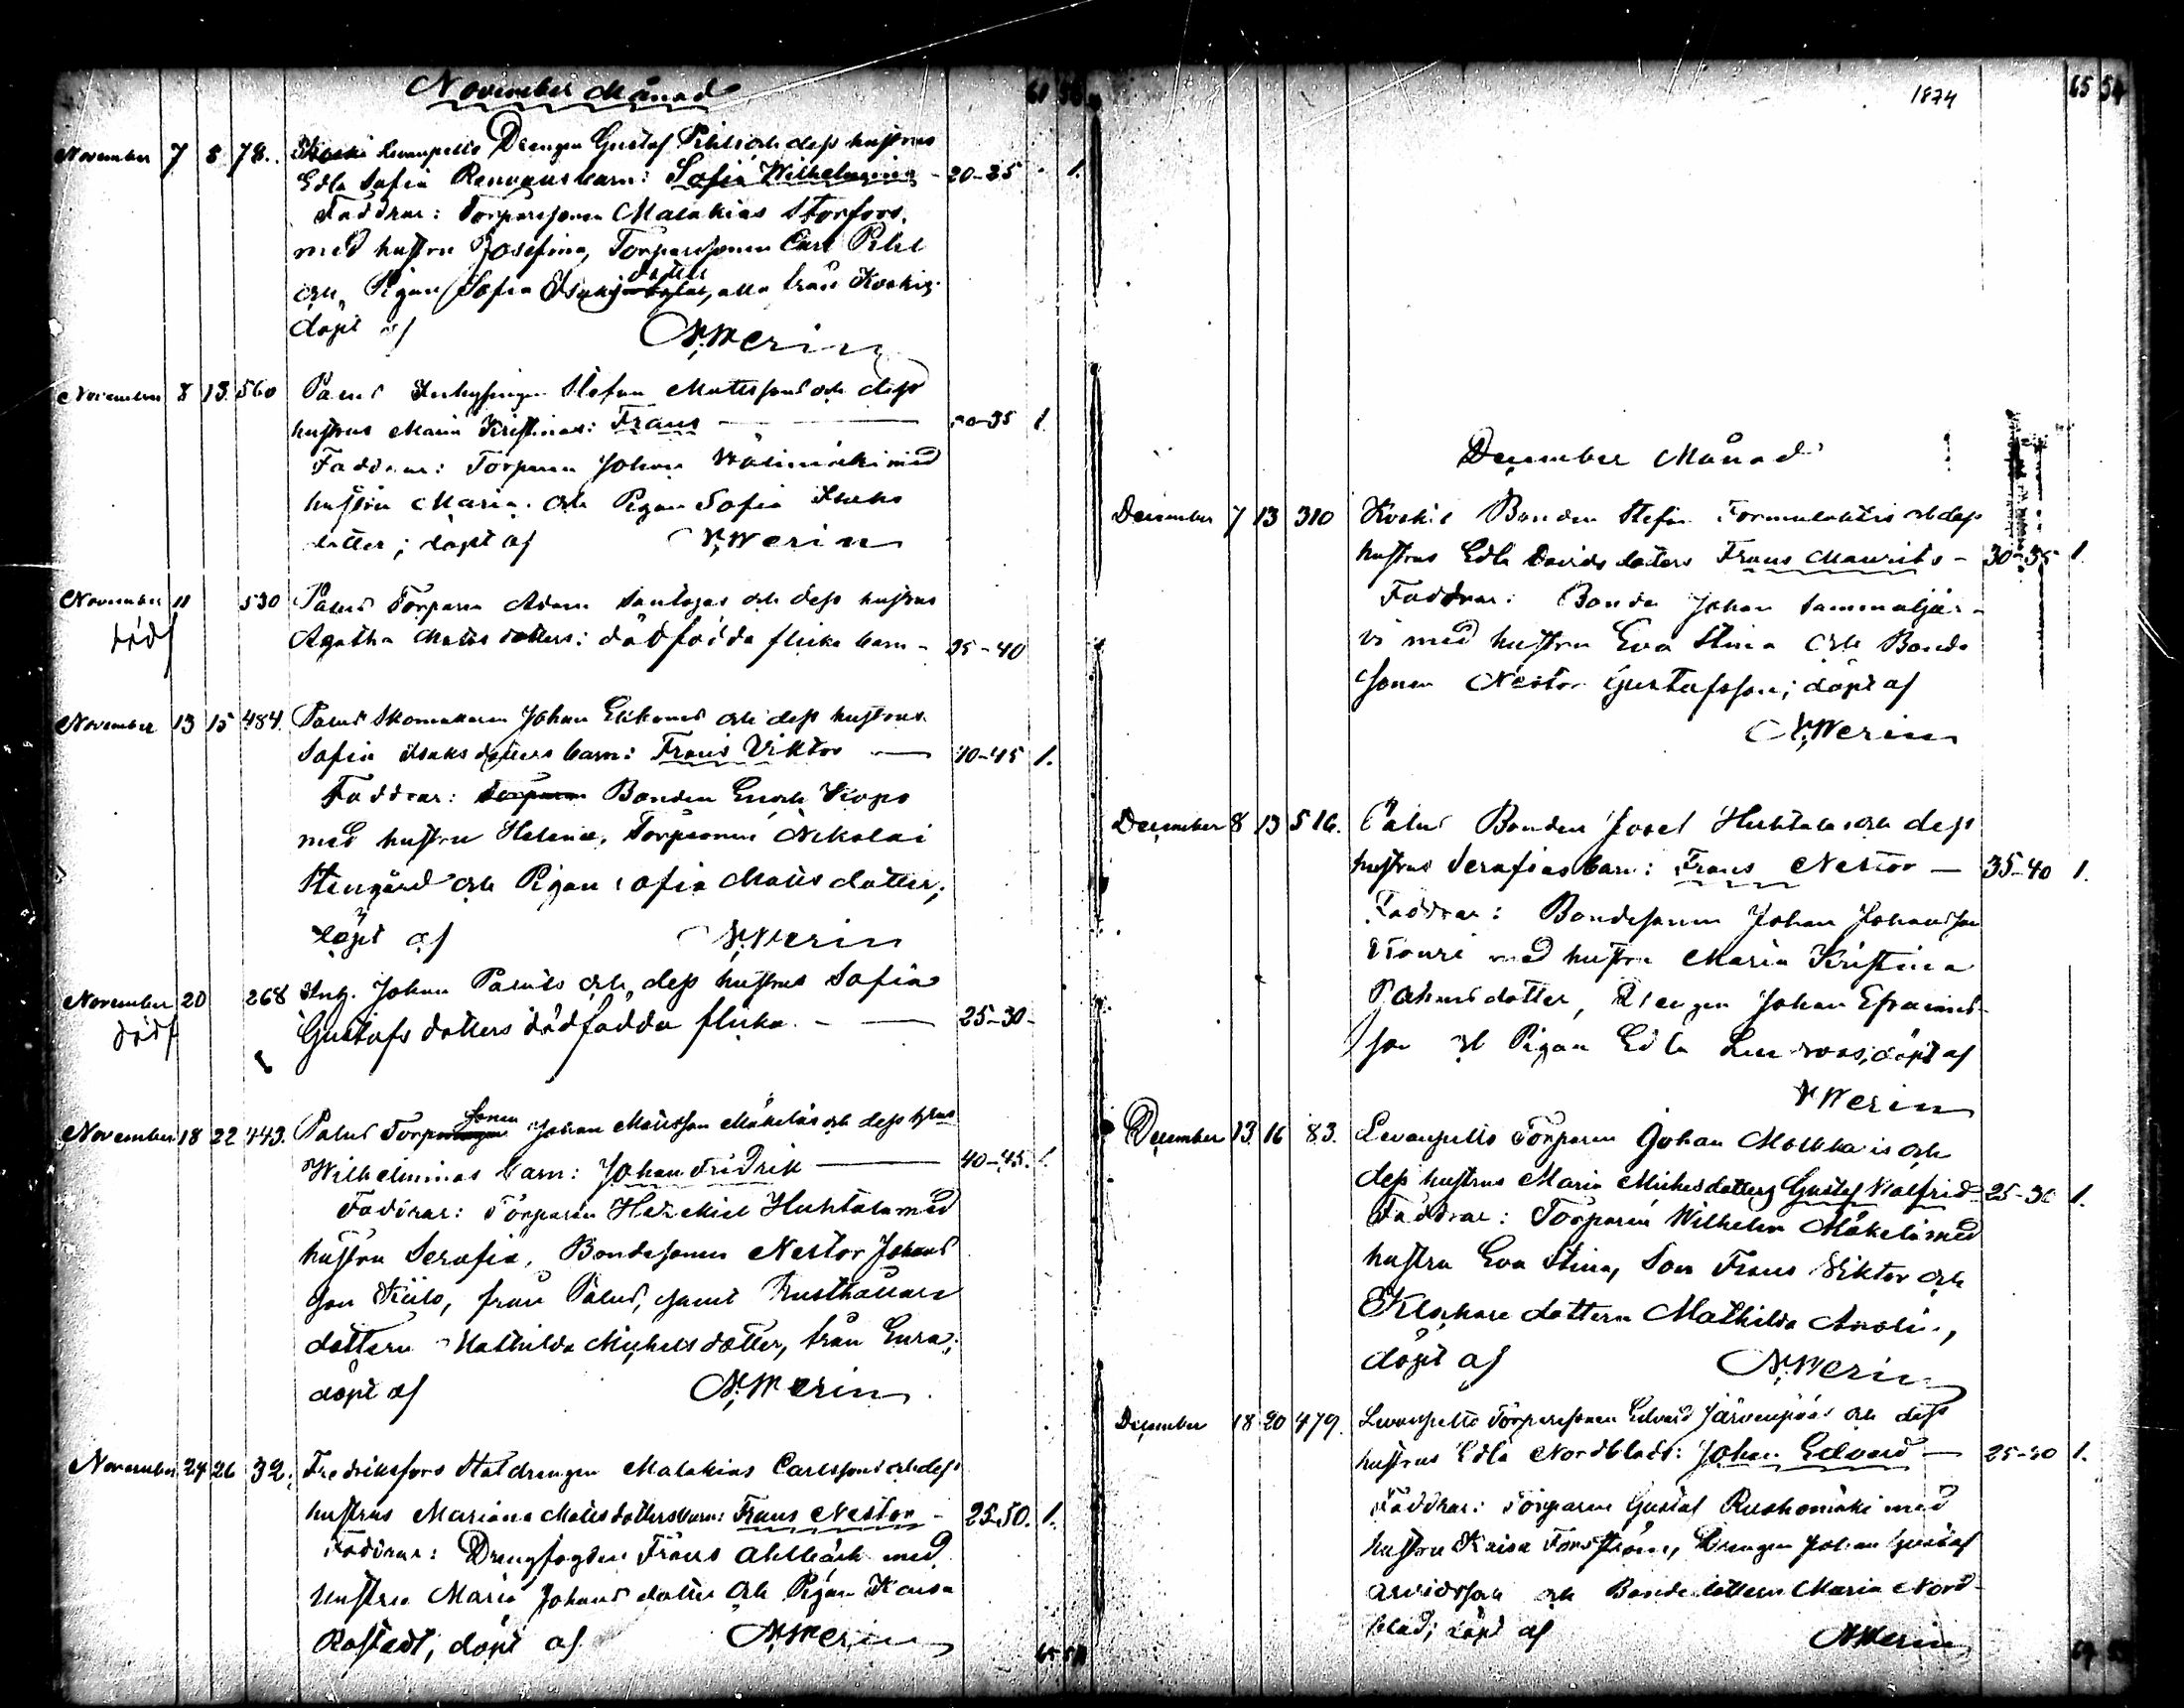 November Månad
61 50
November 7 8 78. Koski Levanpelto Drengen Gustaf Pihls och dess hustrus
Edla Sofia Renvaus barn: Sofia Wilhelmina - 20-25 1.
Faddrar: Torparesonen Malakias Storfors
med hustru Josefina, Torparesonen Carl Pihl
och Pigan Sofia dotter, alla från Koskis
döpt af N. Werin
November 8 13 560 Palus Inhysingen Stefan Mattssons och dess
hustrus Maria Kristinas: Frans — 30-35 1.
Faddrar: Torparen Johan Wälimäki med
hustru Maria och Pigan Sofia Isaks
dotter; döpt af N. Werin
November 11 530 Palus Torparen Adam Santojas och dess hustrus
dödf Agatha Matts dotters: dödfödda flicke barn - 35-40
November 13 15 484. Palus Skomakaren Johan Ekboms och dess hustrus
Sofia Isaks dotters barn: Frans Viktor — 40-45 1.
Faddrar: Torparen Bonden Enok Kops
med hustru Helena, Torparsonen Nikolai
Stengård och Pigan Sofia Matts dotter,
döpt af N. Werin
November 20 268 Inh. Johan Palus och dess hustrus Sofia
dödf Gustafs dotters dödfödda flicka. - — 25-30-
sonen
November 18 22 443. Palus Torp Johan Mattsson Mäkeläs och dess h:trus
Wilhelminas barn: Johan Fridrik — 40-45. 1.
Faddrar: Torparen Hezekiel Huhtala med
hustru Serafia, Bondesonen Nestor Johans
son Kiilo, från Palus, samt Rusthållare
dottern Mathilda Michels dotter, från Eura;
döpt af N. Werin
November 24 26 32. Fredriksfors Staldrengen Malakias Carlssons och dess
hustrus Mariana Matts dotters barn: Frans Nestor - 25-30. 1.
Faddrar: Drengfogden Frans Ahlbäck med
hustru Maria Johans dotter och Pigan Kaisa
Rostedt, döpt af N. Werin
1874
65 54
December Månad
December 7 13 310 Koskis Bonden Stefan Tommilas och dess
hustrus Edla Davids dotters Frans Maurits - 30-35 1.
Faddrar: Bonden Johan Sammaljär-
vi med hustru Eva Stina och Bonde
sonen Nestor Gustafsson; döpt af
N. Werin
December 8 13 516. Palus Bonden Josef Huhtalas och dess
hustrus Serafias barn: Frans Nestor — 35-40 1.
Faddrar: Bondesonen Johan Johansson
Knuri med hustru Maria Kristina
Johansdotter, Drengen Johan Efraims-
son och Pigan Edla, döpt af
N. Werin
December 13 16 83. Levanpelto Torparen Johan Molkkais och
dess hustrus Maria Michelsdotters Gustaf Walfrid 25-30 1.
Faddrar: Torparen Wilhelm Mäkelä med
hustru Eva Stina, Son Frans Viktor och
Klockare dottern Mathilda,
döpt af N. Werin
December 18 20 479. Levanpelto Torparesonen Edvard Järvenpääs och dess
hustrus Edla Nordblads: Johan Edvard — 25-30 1.
Faddrar: Torparen Gustaf Ruohomäki med
hustru Kaisa Forsström, Drengen Johan Gustaf
Arvidsson och Bondedottern Maria Nord-
blad; döpt af N. Werin